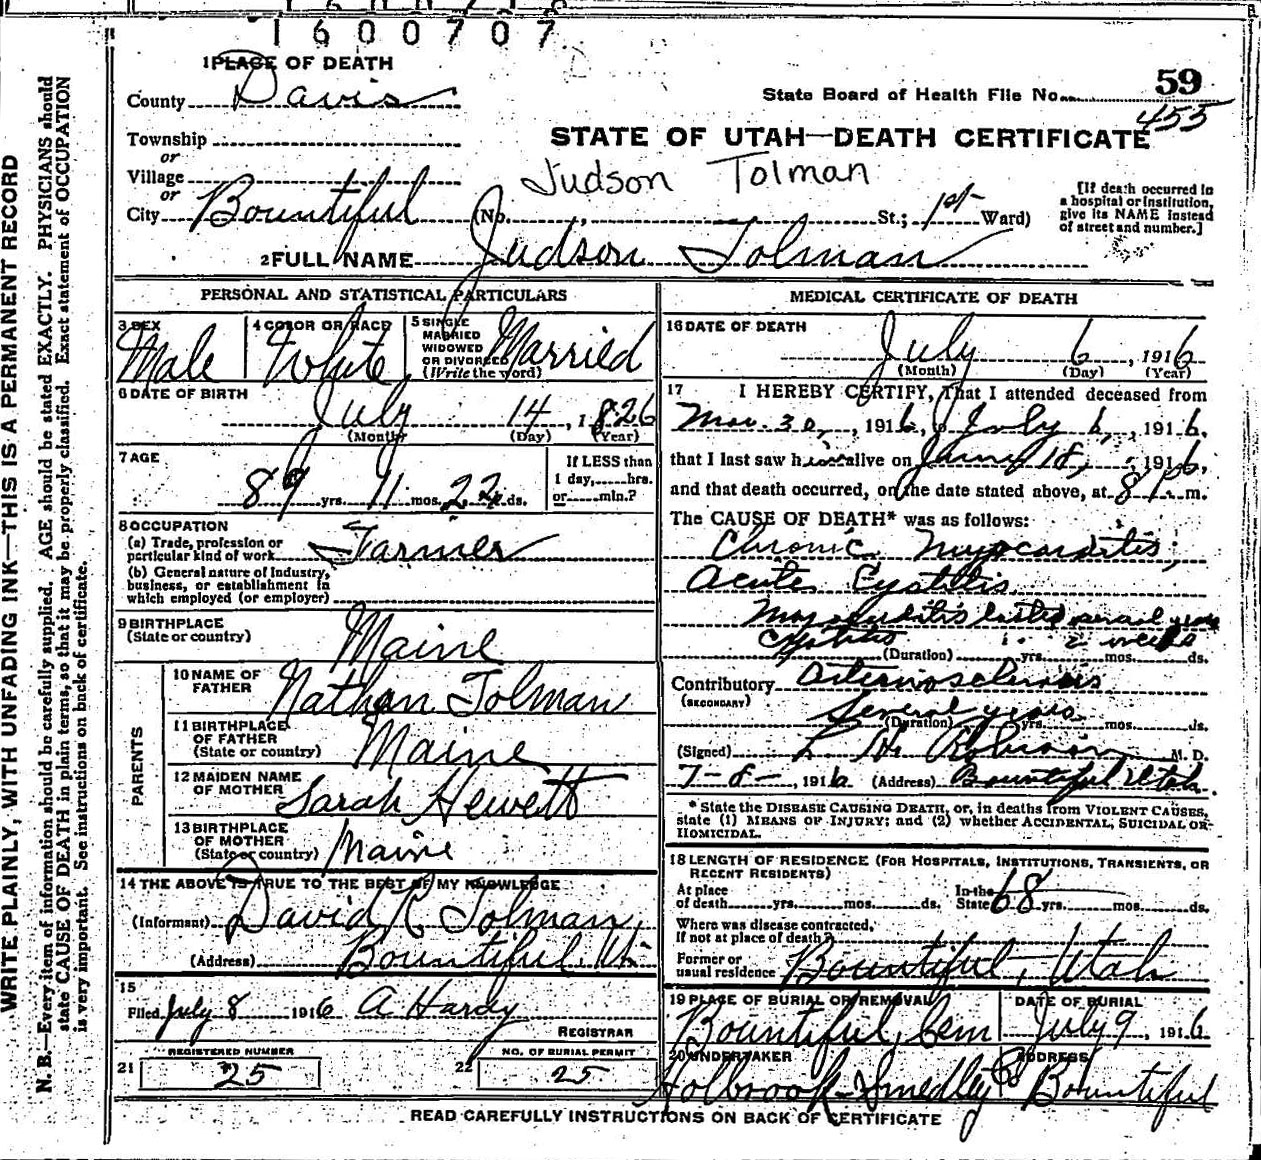 1600707
1 PLACE OF DEATH
County Davis
Township
or
Village
or
City Bountiful (No. , St.; 1st Ward)
59
State Board of Health File No.
455
STATE OF UTAH—DEATH CERTIFICATE
Judson Tolman
[If death occurred in
a hospital or institution,
give its NAME instead
of street and number.]
2 FULL NAME Judson Tolman
PERSONAL AND STATISTICAL PARTICULARS
3 SEX Male
4 COLOR OR RACE White
5 SINGLE
MARRIED
WIDOWED
OR DIVORCED
(Write the word) Married
6 DATE OF BIRTH
July 14, 1826
(Month) (Day) (Year)
7 AGE
89 yrs. 11 mos. 22 ds.
If LESS than
1 day, hrs.
or min.?
8 OCCUPATION
(a) Trade, profession or
particular kind of work Farmer
(b) General nature of Industry,
business, or establishment in
which employed (or employer)
9 BIRTHPLACE
(State or country) Maine
PARENTS
10 NAME OF
FATHER Nathan Tolman
11 BIRTHPLACE
OF FATHER
(State or country) Maine
12 MAIDEN NAME
OF MOTHER Sarah Hewett
13 BIRTHPLACE
OF MOTHER
(State or country) Maine
14 THE ABOVE IS TRUE TO THE BEST OF MY KNOWLEDGE
(Informant) David R Tolman
(Address) Bountiful Ut.
15
Filed July 8 1916 A Hardy
REGISTRAR
21 REGISTERED NUMBER
25
22 NO. OF BURIAL PERMIT
25
MEDICAL CERTIFICATE OF DEATH
16 DATE OF DEATH
July 6, 1916
(Month) (Day) (Year)
17 I HEREBY CERTIFY, That I attended deceased from
Mar. 30, 1916, to July 6, 1916.
that I last saw him alive on June 18, 1916.
and that death occurred, on the date stated above, at 8 P. m.
The CAUSE OF DEATH* was as follows:
Chronic Myocarditis;
Acute Cystitis
Myocarditis lasted several years
Cystitis 2 weeks
(Duration) yrs. mos. ds.
Contributory Arteriosclerosis
(SECONDARY)
Several years
(Duration) yrs. mos. ds.
(Signed) L. H. Robinson M. D.
7-8-, 1916 (Address) Bountiful Utah.
* State the DISEASE CAUSING DEATH, or, in deaths from VIOLENT CAUSES,
state (1) MEANS OF INJURY; and (2) whether ACCIDENTAL, SUICIDAL OR
HOMICIDAL.
18 LENGTH OF RESIDENCE (FOR HOSPITALS, INSTITUTIONS, TRANSIENTS, OR
RECENT RESIDENTS)
At place
of death yrs. mos. ds.
In the
State 68 yrs. mos. ds.
Where was disease contracted,
If not at place of death?
Former or
usual residence Bountiful, Utah
19 PLACE OF BURIAL OR REMOVAL
Bountiful, Cem
DATE OF BURIAL
July 9, 1916.
20 UNDERTAKER
Holbrook-Smedley Co
ADDRESS
Bountiful
READ CAREFULLY INSTRUCTIONS ON BACK OF CERTIFICATE
WRITE PLAINLY, WITH UNFADING INK—THIS IS A PERMANENT RECORD
N. B.—Every item of information should be carefully supplied. AGE should be stated EXACTLY. PHYSICIANS should
state CAUSE OF DEATH in plain terms, so that it may be properly classified. Exact statement of OCCUPATION
is very important. See instructions on back of certificate.